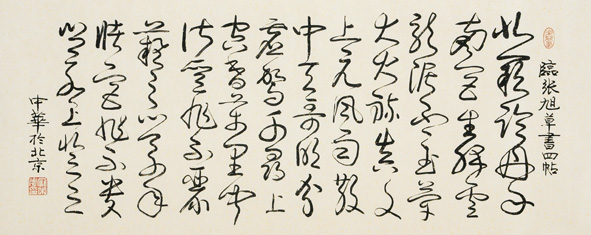 臨张旭草書四帖
北闕臨丹水
南宮生絳雲
龍泥印玉簡
大火煉真文
上元風雨散
中天哥吹分
虛駕千尋上
空香萬里聞
淑質非不麗
難之以萬年
儲宮非不貴
豈若上登天
中華於北京